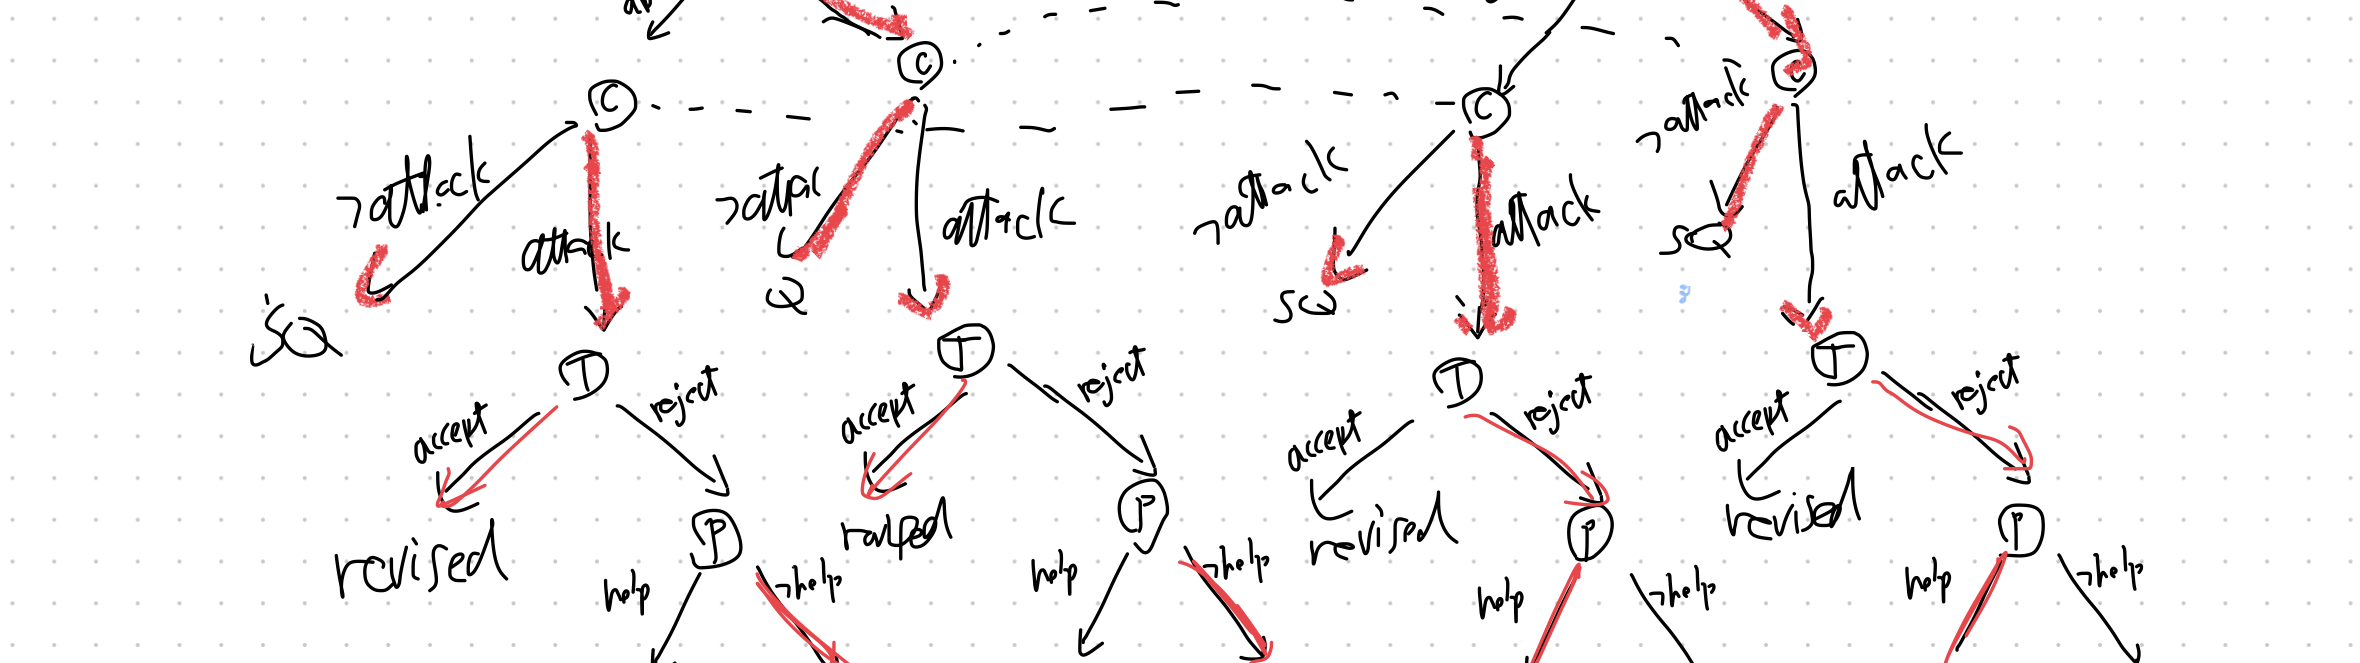 C
C
C
C
¬attack
attack
¬attac
attack
¬attack
attack
¬attack
attack
SQ
Q
SQ
SQ
T
T
T
T
accept
reject
accept
reject
accept
reject
accept
reject
revised
P
P
revised
P
revised
P
help
¬help
help
¬help
help
¬help
help
¬help